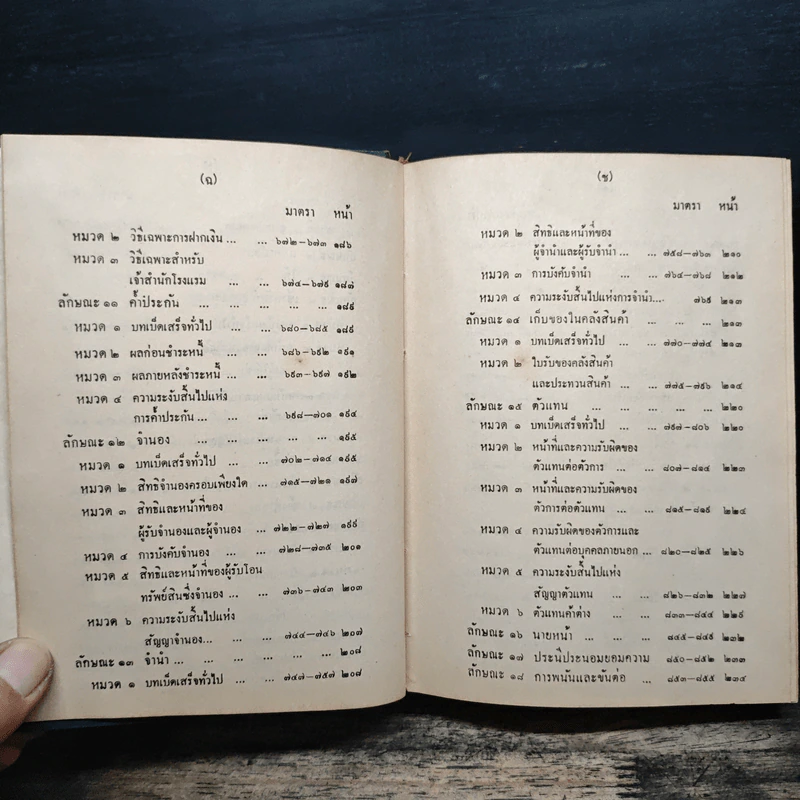 (ฉ)
มาตรา หน้า
หมวด ๒ วิธีเฉพาะการฝากเงิน ... ... ๖๗๒–๖๗๓ ๑๘๖
หมวด ๓ วิธีเฉพาะสำหรับ
เจ้าสำนักโรงแรม ... ... ๖๗๔–๖๗๙ ๑๘๗
ลักษณะ ๑๑ ค้ำประกัน ... ... ... ... ๑๘๙
หมวด ๑ บทเบ็ดเสร็จทั่วไป ... ... ๖๘๐–๖๘๕ ๑๘๙
หมวด ๒ ผลก่อนชำระหนี้ ... ... ๖๘๖–๖๙๒ ๑๙๑
หมวด ๓ ผลภายหลังชำระหนี้ ... ... ๖๙๓–๖๙๗ ๑๙๒
หมวด ๔ ความระงับสิ้นไปแห่ง
การค้ำประกัน ... ... ... ๖๙๘–๗๐๑ ๑๙๔
ลักษณะ ๑๒ จำนอง ... ... ... ... ๑๙๕
หมวด ๑ บทเบ็ดเสร็จทั่วไป ... ... ๗๐๒–๗๑๔ ๑๙๕
หมวด ๒ สิทธิจำนองครอบเพียงใด ... ... ๗๑๕–๗๒๑ ๑๙๗
หมวด ๓ สิทธิและหน้าที่ของ
ผู้รับจำนองและผู้จำนอง ... ... ๗๒๒–๗๒๗ ๑๙๙
หมวด ๔ การบังคับจำนอง ... ... ๗๒๘–๗๓๕ ๒๐๑
หมวด ๕ สิทธิและหน้าที่ของผู้รับโอน
ทรัพย์สินซึ่งจำนอง ... ... ๗๓๖–๗๔๓ ๒๐๓
หมวด ๖ ความระงับสิ้นไปแห่ง
สัญญาจำนอง... ... ... ๗๔๔–๗๔๖ ๒๐๗
ลักษณะ ๑๓ จำนำ ... ... ... ... ๒๐๘
หมวด ๑ บทเบ็ดเสร็จทั่วไป ... ... ๗๔๗–๗๕๗ ๒๐๘
(ช)
มาตรา หน้า
หมวด ๒ สิทธิและหน้าที่ของ
ผู้จำนำและผู้รับจำนำ ... ... ๗๕๘–๗๖๓ ๒๑๐
หมวด ๓ การบังคับจำนำ ... ... ๗๖๔–๗๖๘ ๒๑๒
หมวด ๔ ความระงับสิ้นไปแห่งการจำนำ.... ๗๖๙ ๒๑๓
ลักษณะ ๑๔ เก็บของในคลังสินค้า ... ... ... ๒๑๓
หมวด ๑ บทเบ็ดเสร็จทั่วไป ... ... ๗๗๐–๗๗๔ ๒๑๓
หมวด ๒ ใบรับของคลังสินค้า
และประทวนสินค้า ... ... ๗๗๕–๗๙๖ ๒๑๔
ลักษณะ ๑๕ ตัวแทน ... ... ... ... ๒๒๐
หมวด ๑ บทเบ็ดเสร็จทั่วไป ... ... ๗๙๗–๘๐๖ ๒๒๐
หมวด ๒ หน้าที่และความรับผิดของ
ตัวแทนต่อตัวการ ... ... ๘๐๗–๘๑๔ ๒๒๓
หมวด ๓ หน้าที่และความรับผิดของ
ตัวการต่อตัวแทน ... ... ๘๑๕–๘๑๙ ๒๒๔
หมวด ๔ ความรับผิดของตัวการและ
ตัวแทนต่อบุคคลภายนอก ... ๘๒๐–๘๒๕ ๒๒๖
หมวด ๕ ความระงับสิ้นไปแห่ง
สัญญาตัวแทน ... ... ๘๒๖–๘๓๒ ๒๒๗
หมวด ๖ ตัวแทนค้าต่าง ... ... ๘๓๓–๘๔๔ ๒๒๙
ลักษณะ ๑๖ นายหน้า ... ... ... ๘๔๕–๘๔๙ ๒๓๒
ลักษณะ ๑๗ ประนีประนอมยอมความ ๘๕๐–๘๕๒ ๒๓๓
ลักษณะ ๑๘ การพนันและขันต่อ ... ๘๕๓–๘๕๕ ๒๓๔